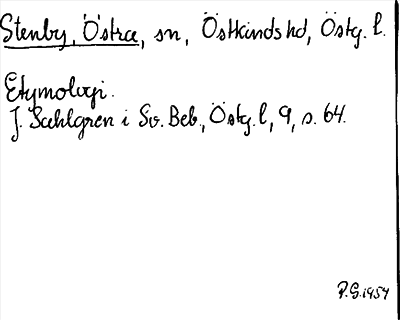 Stenby, Östra, sn, Östkinds hd, Östg. l.
Etymologi.
J. Sahlgren i Sv. Beb., Östg. l, 9, s. 64.
P.G. 1954